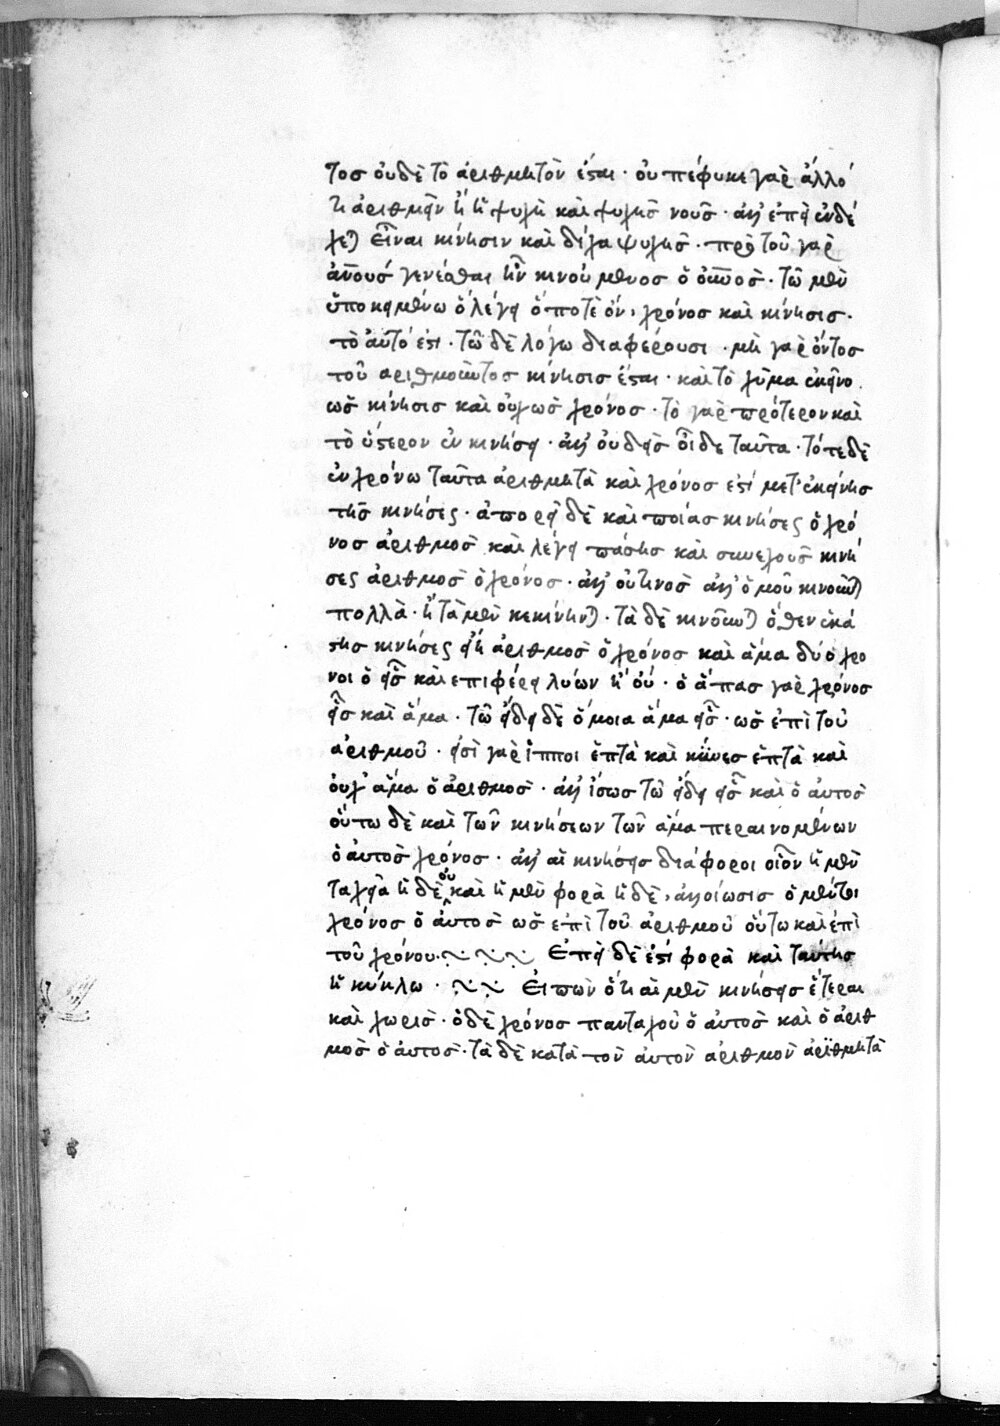 τος οὐδὲ τὸ ἀριθμητὸν ἔσται · οὐ πέφυκε γὰρ ἄλλό
τι ἀριθμεῖν ἢ ἡ ψυχὴ καὶ ψυχῆς νοῦς · ἀλλ' ἐπεὶ ἐνδέ
χεται εἶναι κίνησιν καὶ δίχα ψυχῆς · πρὸ τοῦ γὰρ
ἀν̅ο̅υς γενέσθαι ἦν κινούμενος ὁ οὐ̅ν̅ος · τῶ μὲν
ὑποκειμένω ὃ λέγει ὅ ποτε ὄν, χρόνος καὶ κίνησις ·
τὸ αὐτό ἐστι · τῶ δὲ λόγω διαφέρουσι · μὴ γὰρ ὄντος
τοῦ ἀριθμοῦντος κίνησις ἔσται · καὶ τὸ χύμα ἐκεῖνο
ὡς κίνησις καὶ οὐχ ὡς χρόνος · τὸ γὰρ πρότερον καὶ
τὸ ὕστερον ἐν κινήσει · ἀλλ' οὐδεὶς οἶδε ταῦτα · τότε δὲ
ἐν χρόνω ταῦτα ἀριθμητὰ καὶ χρόνος ἐστί μετ' ἐκείνης
τῆς κινήσεως · ἀπορεῖ δὲ καὶ ποίας κινήσεως ὁ χρό
νος ἀριθμὸς καὶ λέγει πάσης καὶ συνεχοῦς κινή
σεως ἀριθμὸς ὁ χρόνος · ἀλλ' οὔ τινος ἀλλ' ὁμοῦ κινοῦνται
πολλὰ · ἢ τὰ μὲν κεκίνηνται · τὰ δὲ κινοῦνται ὅθεν ἑκά
στης κινήσεως εἴη ἀριθμὸς ὁ χρόνος καὶ ἅμα δύο χρό
νοι ὁ εἷς καὶ ἐπιφέρει λύων ἢ οὔ · ὁ ἅπας γὰρ χρόνος
εἷς καὶ ἅμα · τῶ εἴδει δὲ ὅμοια ἅμα εἷς · ὡς ἐπὶ τοῦ
ἀριθμοῦ · εἰσὶ γὰρ ἵπποι ἑπτὰ καὶ κύνες ἑπτὰ καὶ
οὐχ' ἅμα ὁ ἀριθμὸς · ἀλλ' ἴσως τῶ εἴδει εἷς καὶ ὁ αὐτὸς
οὕτω δὲ καὶ τῶν κινήσεων τῶν ἅμα περαινομένων
ὁ αὐτὸς χρόνος · ἀλλ' αἱ κινήσεις διάφοροι οἷον ἡ μὲν
ταχεῖα ἡ δὲ οὒ καὶ ἡ μὲν φορὰ ἡ δὲ, ἀλλοίωσις ὁ μέντοι
χρόνος ὁ αὐτὸς ὡς ἐπὶ τοῦ ἀριθμοῦ οὕτω καὶ ἐπὶ
τοῦ χρόνου · Ἐπεὶ δὲ ἐστὶ φορὰ καὶ ταύτης
ἡ κύκλω · Εἰπὼν ὅτι αἱ μὲν κινήσεις ἕτεραι
καὶ χωρὶς · ὁ δὲ χρόνος πανταχοῦ ὁ αὐτὸς καὶ ὁ ἀριθ
μὸς ὁ αὐτὸς · τὰ δὲ κατὰ τὸν αὐτὸν ἀριθμὸν ἀριθμητὰ